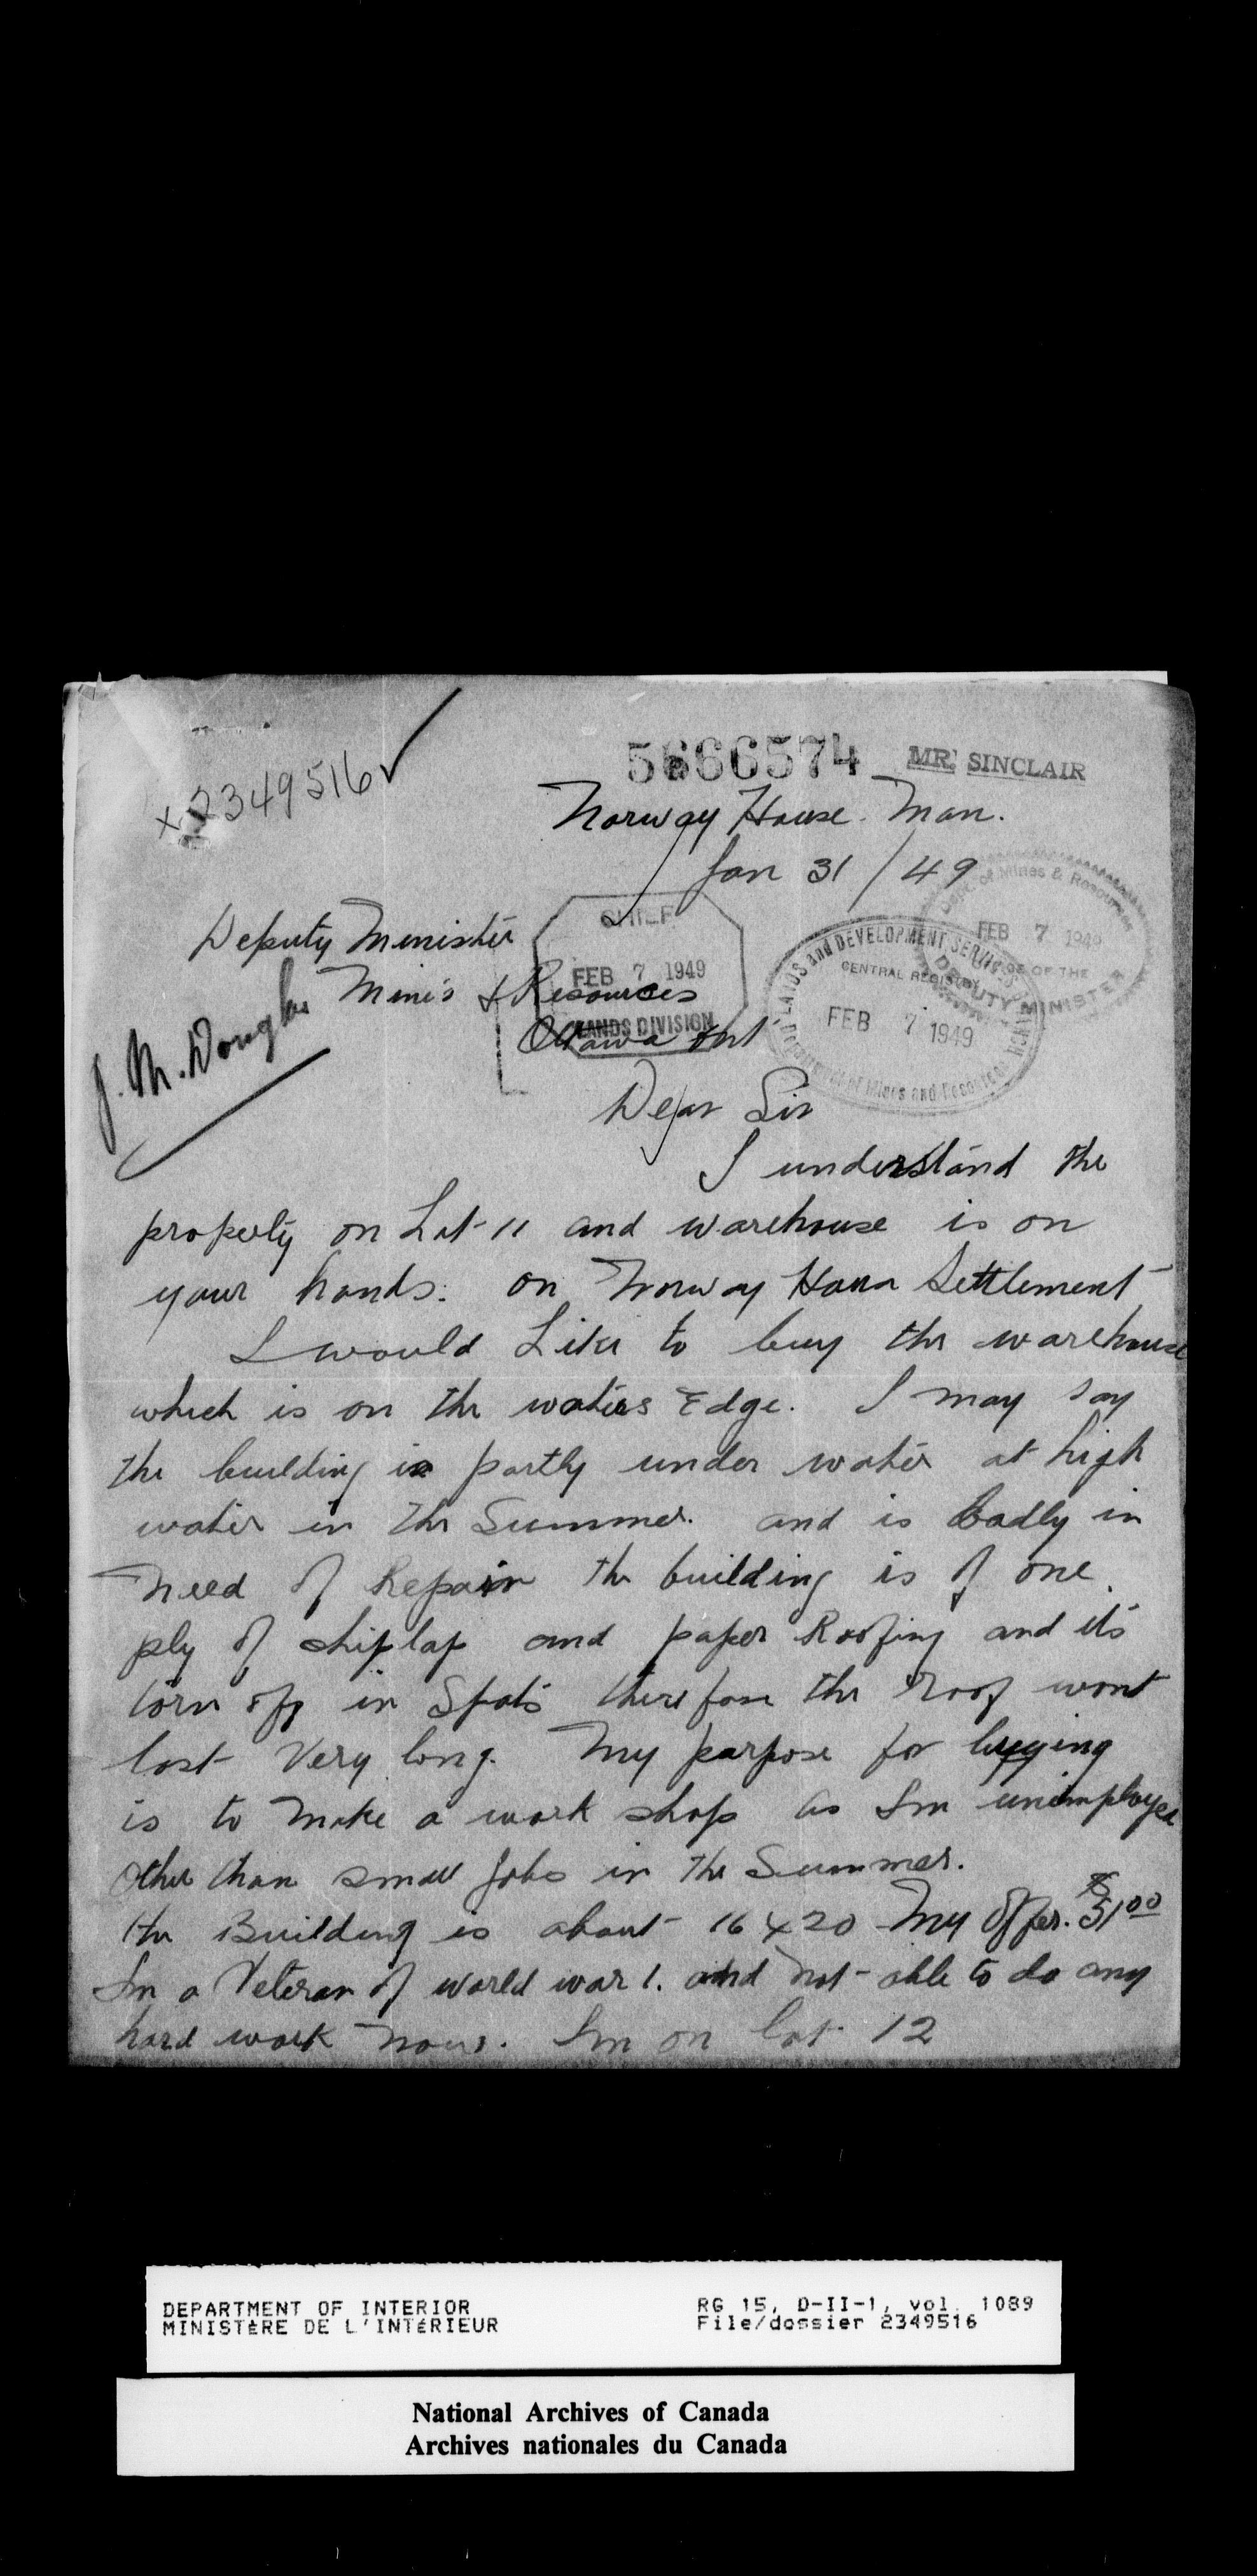 x 2349516
5666574
MR. SINCLAIR
Norway House. Man.
Jan 31/49
Deputy Minister
Mines & Resources
Ottawa Ont
CHIEF
FEB 7 1949
LANDS DIVISION
Dept. of Mines & Resources
FEB 7 1949
OFFICE OF THE
DEPUTY MINISTER
LANDS and DEVELOPMENT SERVICES BRANCH
CENTRAL REGISTRY
FEB 7 1949
Department of Mines and Resources
J. M.
Dear Sir
I understand the
property on Lot 11 and warehouse is on
your hands. on Norway House Settlement
I would Like to buy the warehouse
which is on the waters Edge. I may say
the building is partly under water at high
water in the Summer. and is badly in
need of Repair the building is of one
ply of shiplap and paper Roofing and its
torn off in Spots therefore the roof wont
last Very long. My purpose for buying
is to make a work shop as Im unimployed
other than small jobs in the Summer.
the Building is about 16 x 20 My Offer. $51 00
Im a Veteran of world war 1. and not able to do any
hard work now. Im on lot 12
DEPARTMENT OF INTERIOR
MINISTÈRE DE L'INTÉRIEUR
RG 15, D-II-1, vol. 1089
File/dossier 2349516
National Archives of Canada
Archives nationales du Canada